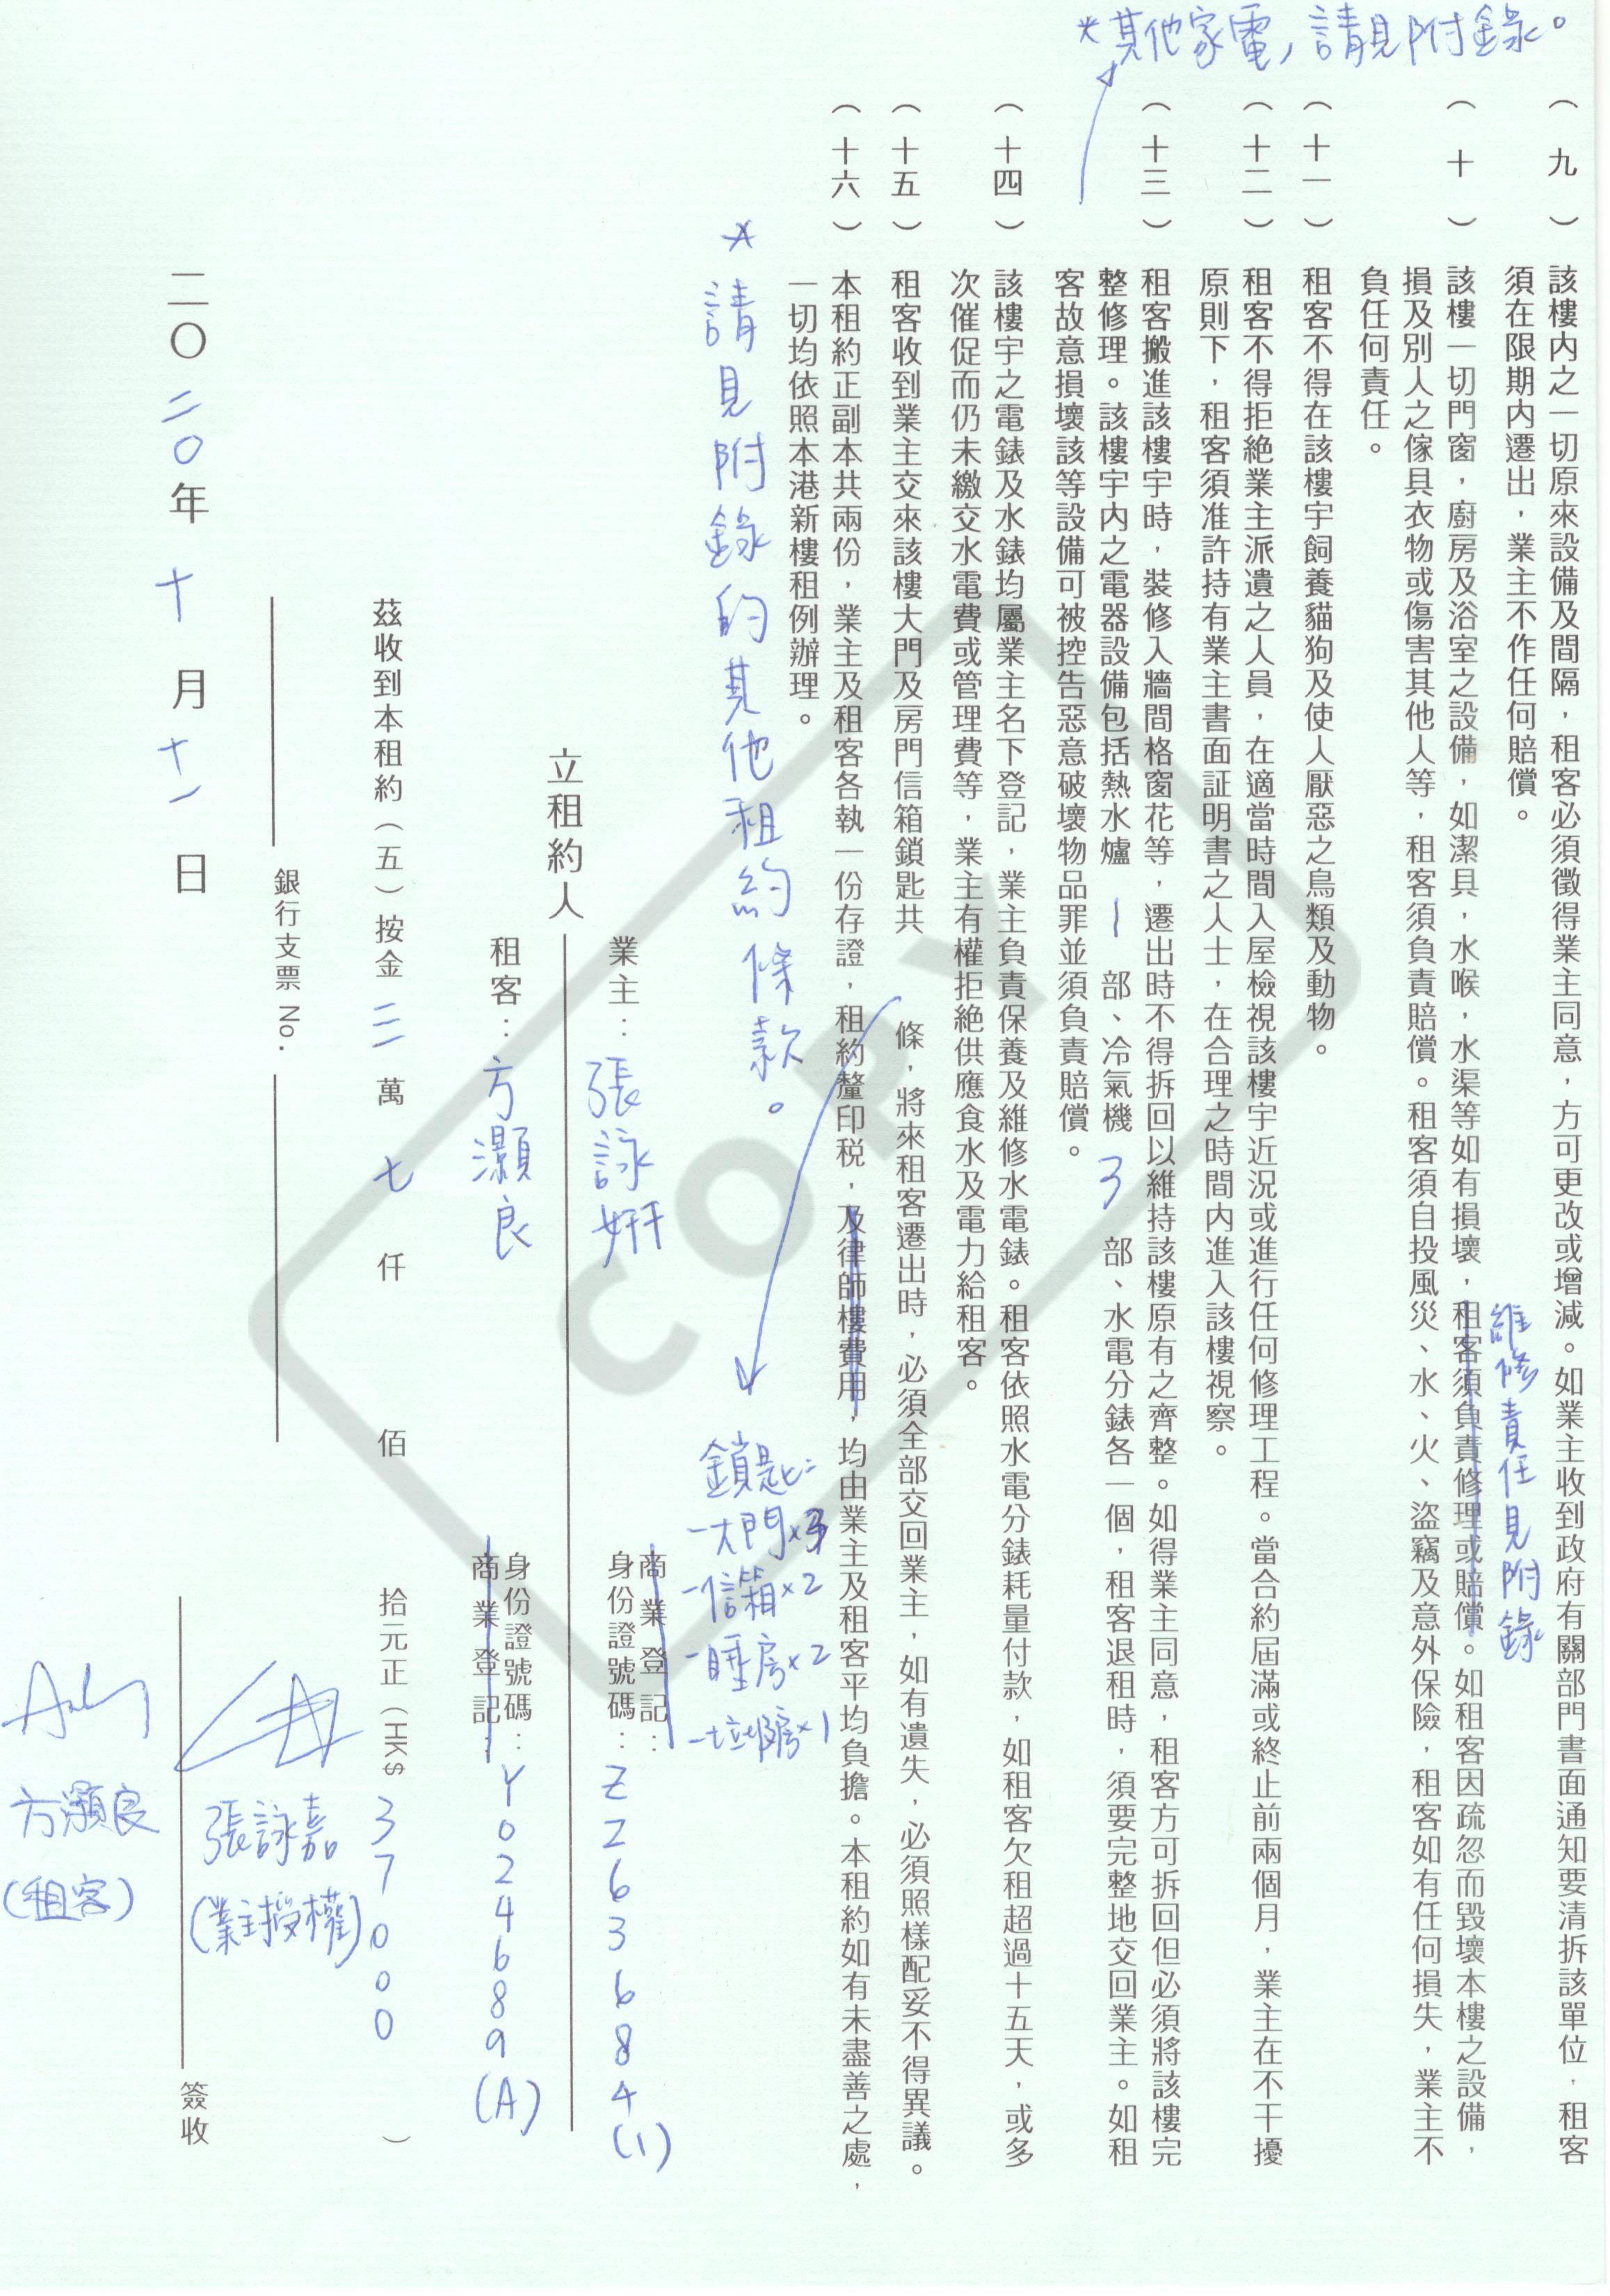 *其他家電，請見附錄。
（九）該樓內之一切原來設備及間隔，租客必須徵得業主同意，方可更改或增減。如業主收到政府有關部門書面通知要清拆該單位，租客
須在限期內遷出，業主不作任何賠償。
維修責任見附錄
（十）該樓一切門窗，廚房及浴室之設備，如潔具，水喉，水渠等如有損壞，租客須負責修理或賠償。如租客因疏忽而毀壞本樓之設備，
損及別人之傢具衣物或傷害其他人等，租客須負責賠償。租客須自投風災、水、火、盜竊及意外保險，租客如有任何損失，業主不
負任何責任。
（十一）租客不得在該樓宇飼養貓狗及使人厭惡之鳥類及動物。
（十二）租客不得拒絕業主派遺之人員，在適當時間入屋檢視該樓宇近況或進行任何修理工程。當合約屆滿或終止前兩個月，業主在不干擾
原則下，租客須准許持有業主書面証明書之人士，在合理之時間內進入該樓視察。
（十三）租客搬進該樓宇時，裝修入牆間格窗花等，遷出時不得拆回以維持該樓原有之齊整。如得業主同意，租客方可拆回但必須將該樓完
整修理。該樓宇內之電器設備包括熱水爐 1 部、冷氣機 3 部、水電分錶各一個，租客退租時，須要完整地交回業主。如租
客故意損壞該等設備可被控告惡意破壞物品罪並須負責賠償。
（十四）該樓宇之電錶及水錶均屬業主名下登記，業主負責保養及維修水電錶。租客依照水電分錶耗量付款，如租客欠租超過十五天，或多
次催促而仍未繳交水電費或管理費等，業主有權拒絶供應食水及電力給租客。
（十五）租客收到業主交來該樓大門及房門信箱鎖匙共 條，將來租客遷出時，必須全部交回業主，如有遺失，必須照樣配妥不得異議。
（十六）本租約正副本共兩份，業主及租客各執一份存證，租約釐印稅，及律師樓費用，均由業主及租客平均負擔。本租約如有未盡善之處，
一切均依照本港新樓租例辦理。
*請見附錄的其他租約條款。
鎖匙：
-大門×3
-信箱×2
-睡房×2
-垃圾房×1
立租約人
業主：張詠妍
商業登記：
身份證號碼：Z263684(1)
租客：方灝良
身份證號碼：Y024689(A)
商業登記：
茲收到本租約（五）按金 三 萬 七 仟 佰 拾元正（HK$ 37000 ）
銀行支票 No.
張詠嘉
(業主授權)
簽收
方灝良
(租客)
二〇二〇年十月十一日